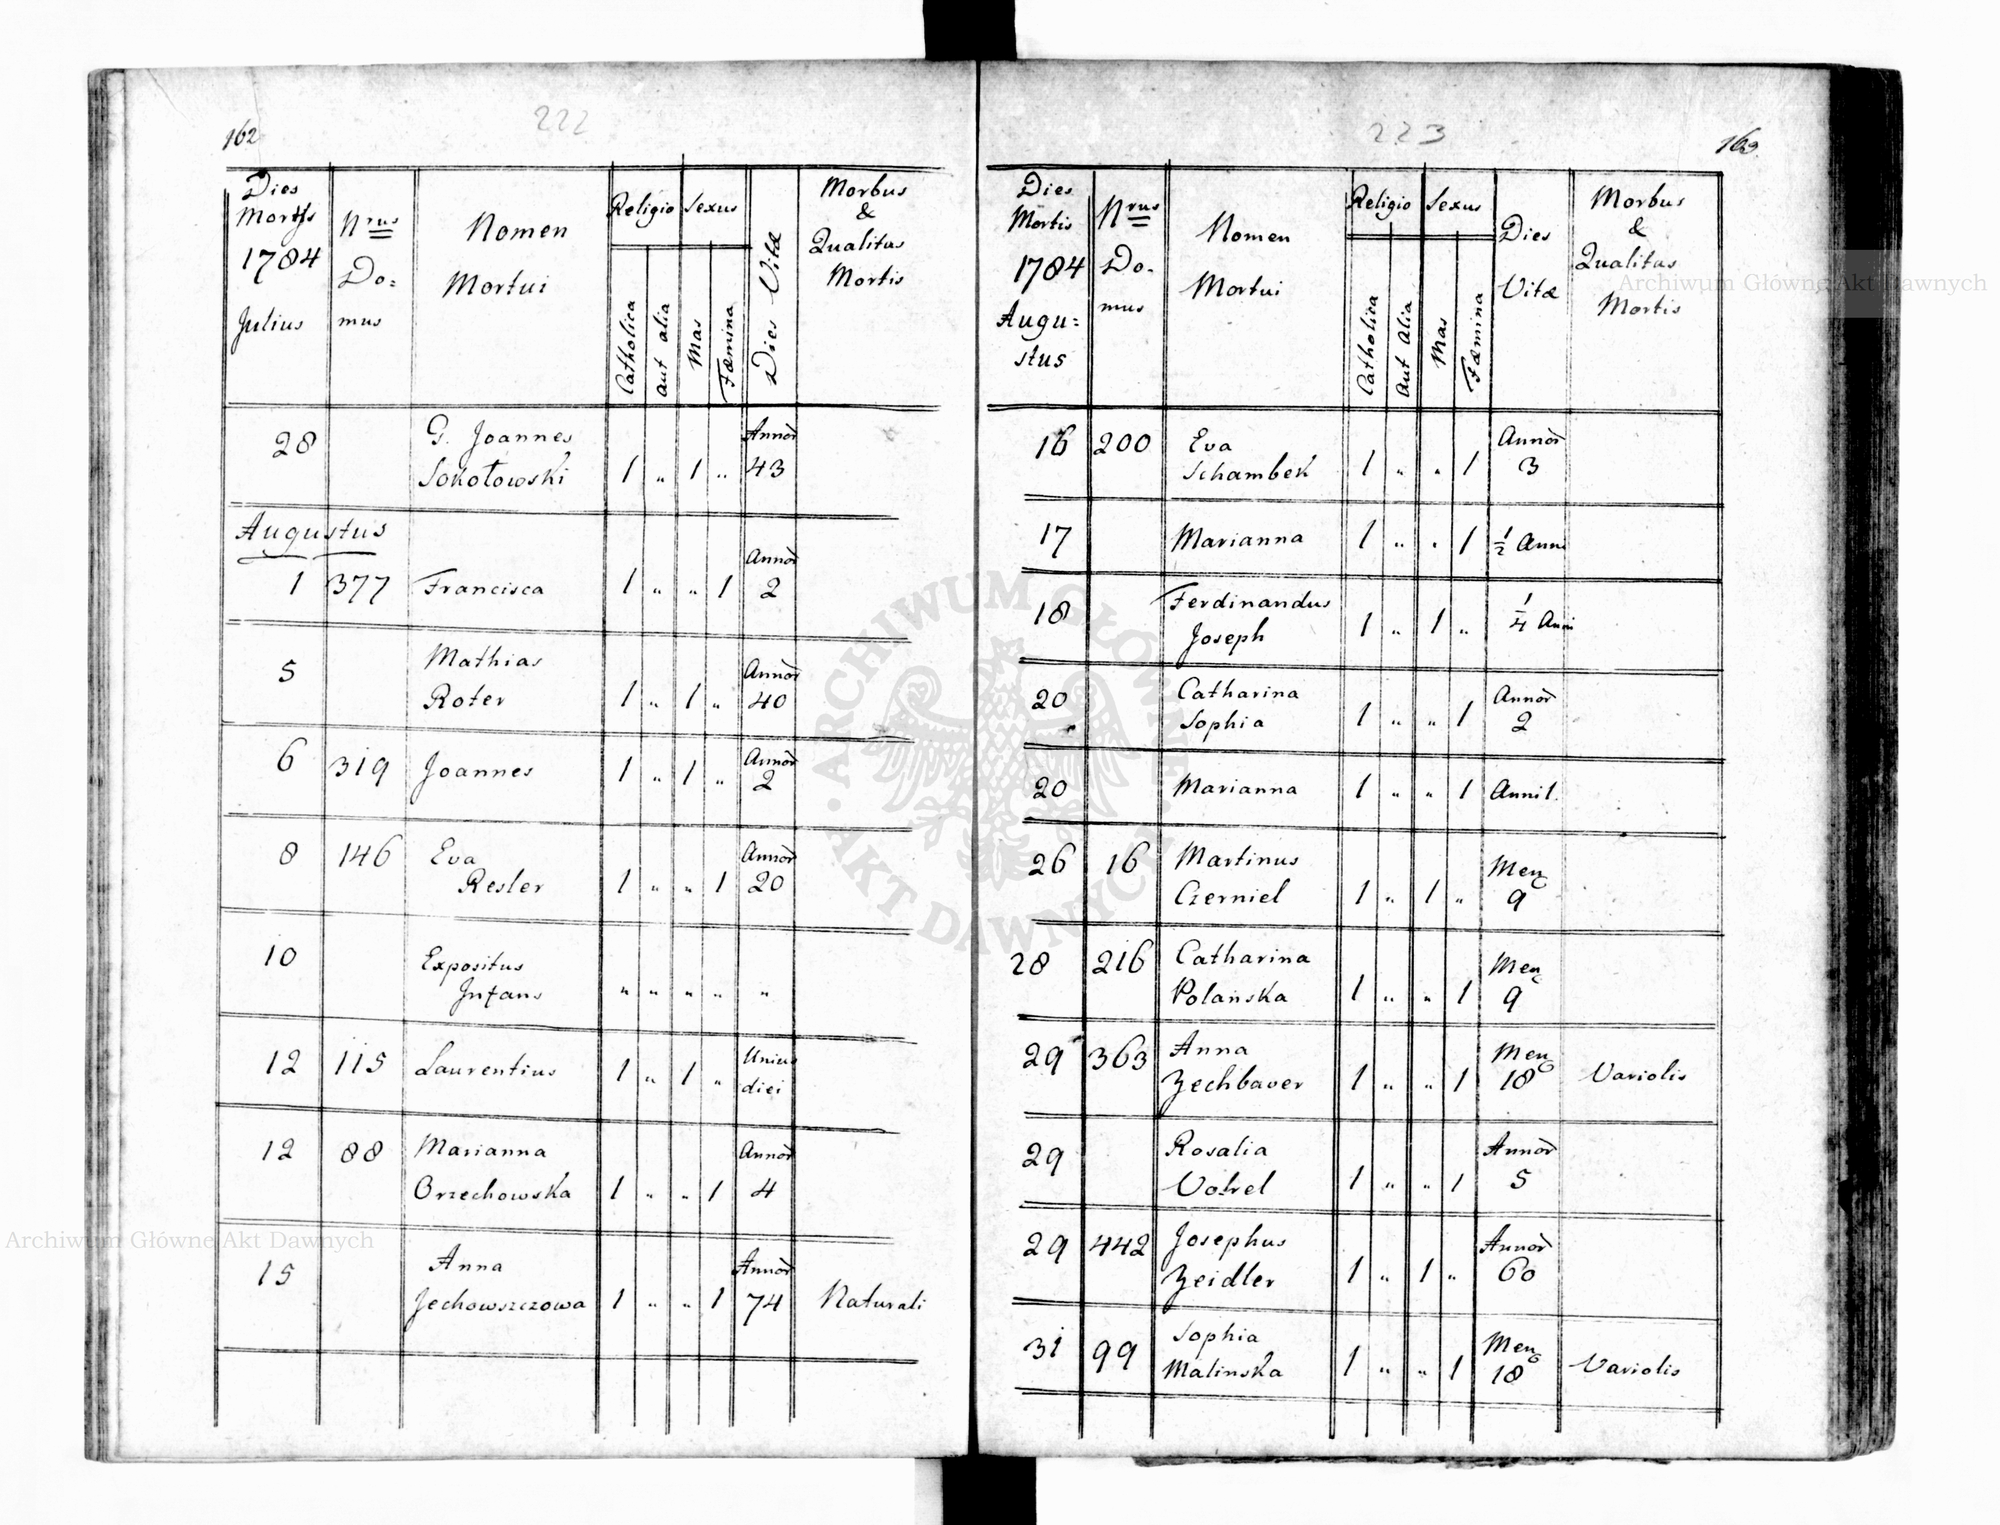 162
222
Dies
Mortis
1784
Julius
Nrus
Do:
mus
Nomen
Mortui
Religio
Sexus
Catholica
aut alia
Mas
Fæmina
Dies Vitæ
Morbus
&
Qualitas
Mortis
28
G. Joannes
Sokołowski 1 " 1 "
Annor
43
Augustus
1 377 Francisca 1 " " 1
Annor
2
5
Mathias
Roter 1 " 1 "
Annor
40
6 319 Joannes 1 " 1 "
Annor
2
8 146 Eva
Resler 1 " " 1
Annor
20
10
Expositus
Infans " " " " "
12 115 Laurentius 1 " 1 "
Unius
diei
12 88 Marianna
Orzechowska 1 " " 1
Annor
4
15
Anna
Jechowszczowa 1 " " 1
Annor
74
Naturali
223
163
Dies
Mortis
1784
Augu:
stus
Nrus
Do-
mus
Nomen
Mortui
Religio
Sexus
Catholica
aut alia
Mas
Fæmina
Dies
Vitæ
Morbus
&
Qualitas
Mortis
16 200 Eva
Schambek 1 " " 1
Annor
3
17 Marianna 1 " " 1 1/2 Anni
18 Ferdinandus
Joseph 1 " 1 " 1/4 Anni
20 Catharina
Sophia 1 " " 1
Annor
2
20 Marianna 1 " " 1 Anni 1.
26 16 Martinus
Czerniel 1 " 1 "
Men
9
28 216 Catharina
Polańska 1 " " 1
Men
9
29 363 Anna
Zechbauer 1 " " 1
Men
18
Variolis
29 Rosalia
1 " " 1
Annor
5
29 442 Josephus
Zeidler 1 " 1 "
Annor
60
31 99 Sophia
Malinska 1 " " 1
Men
18
Variolis
Archiwum Główne Akt Dawnych
Archiwum Główne Akt Dawnych
ARCHIWUM GŁÓWNE
AKT DAWNYCH